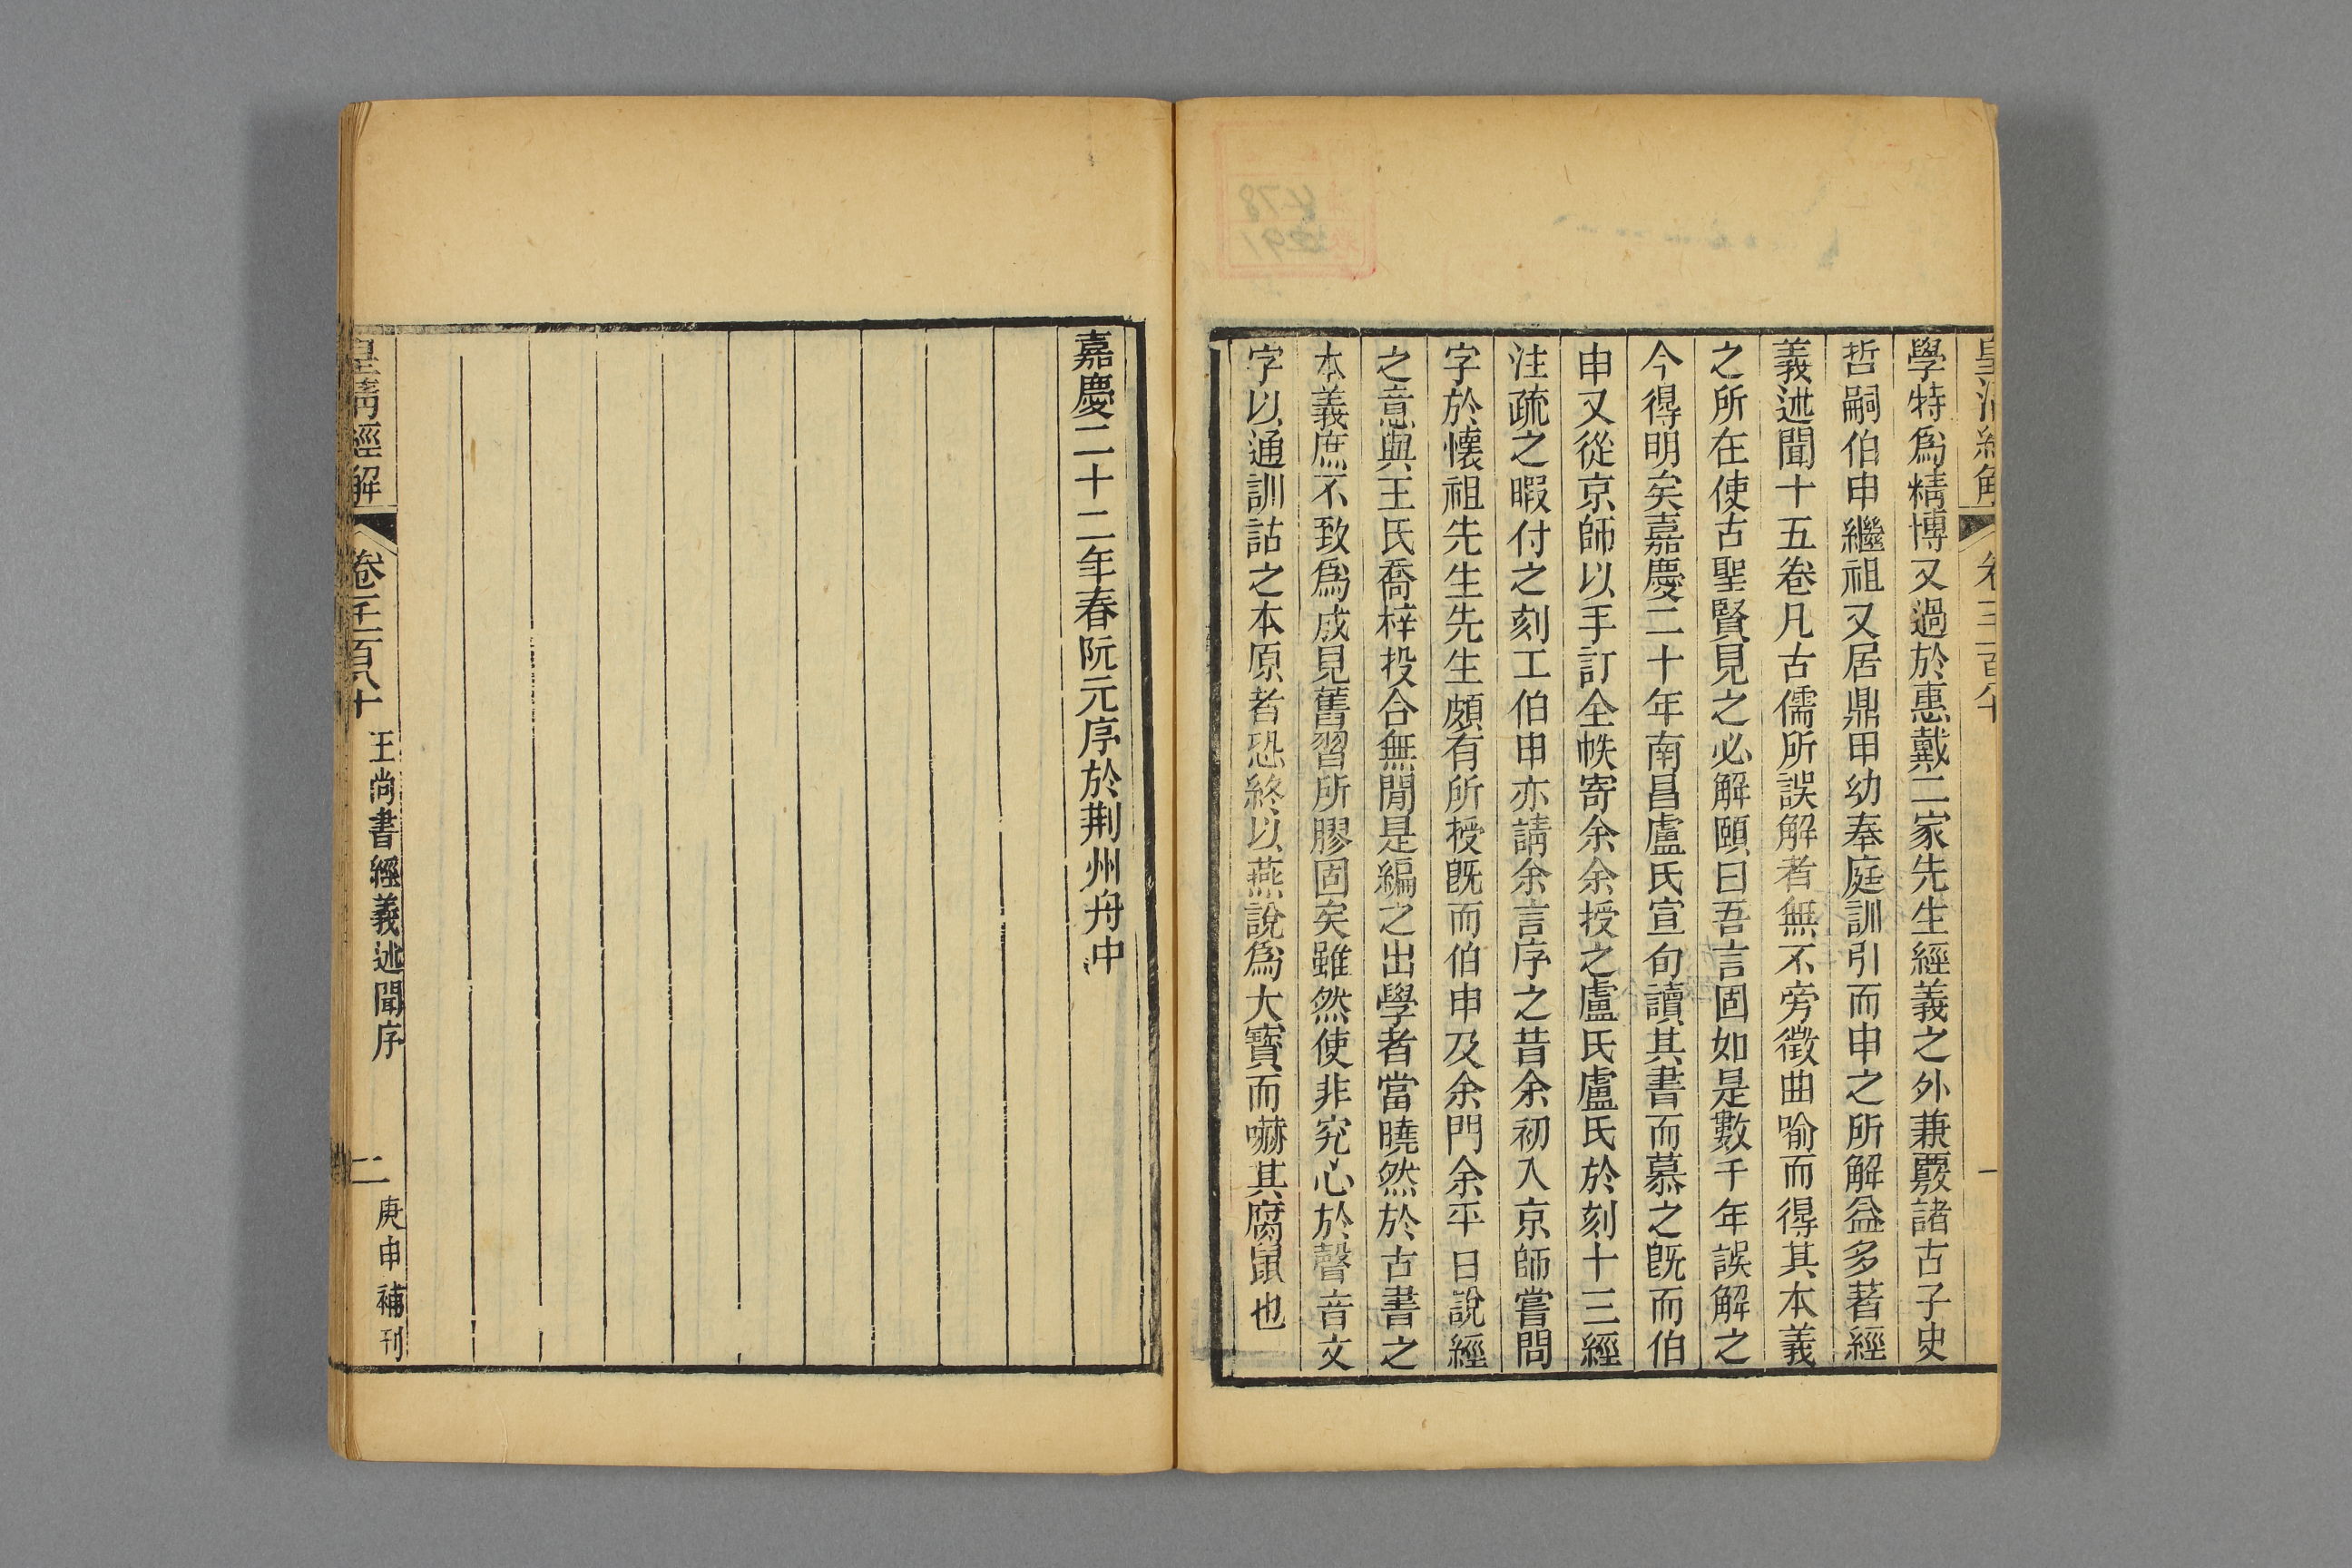 學特爲精博又過於惠戴二家先生經義之外兼覈諸古子史
哲嗣伯申繼祖又居鼎甲幼奉庭訓引而申之所解益多著經
義述聞十五卷凡古儒所誤解者無不旁徵曲喻而得其本義
之所在使古聖賢見之必解頤曰吾言固如是數千年誤解之
今得明矣嘉慶二十年南昌盧氏宣旬讀其書而慕之旣而伯
申又從京師以手訂全帙寄余余授之盧氏盧氏於刻十三經
注疏之暇付之刻工伯申亦請余言序之昔余初入京師嘗問
字於懷祖先生先生頗有所授旣而伯申及余門余平日說經
之意與王氏喬梓投合無閒是編之出學者當曉然於古書之
本義庶不致爲成見舊習所膠固矣雖然使非究心於聲音文
字以通訓詁之本原者恐終以燕說爲大寶而嚇其腐鼠也
嘉慶二十二年春阮元序於荆州舟中
皇清經解
卷一千一百八十
王尚書經義述聞序
二
庚申補刊